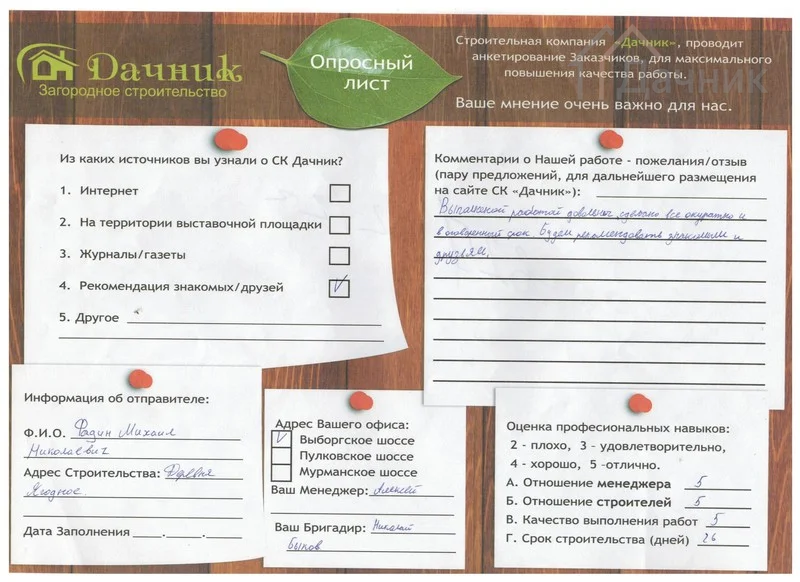 Дачник
Загородное строительство
Опросный
лист
Строительная компания «Дачник», проводит
анкетирование Заказчиков, для максимального
повышения качества работы.
Ваше мнение очень важно для нас.
Дачник
Из каких источников вы узнали о СК Дачник?
1. Интернет
2. На территории выставочной площадки
3. Журналы/газеты
4. Рекомендация знакомых/друзей
5. Другое
Комментарии о Нашей работе - пожелания/отзыв
(пару предложений, для дальнейшего размещения
на сайте СК «Дачник»):
работой довольны, сделано все окуратно и
в оговоренный срок. Будем рекомендовать знакомым и
друзьям.
Информация об отправителе:
Ф.И.О. Фадин Михаил
Николаевич
Адрес Строительства: Деревня
Ягодное
Дата Заполнения ___.___.___
Адрес Вашего офиса:
Выборгское шоссе
Пулковское шоссе
Мурманское шоссе
Ваш Менеджер: Алексей
Ваш Бригадир: Николай
Быков
Оценка профессиональных навыков:
2 - плохо, 3 - удовлетворительно,
4 - хорошо, 5 -отлично.
А. Отношение менеджера 5
Б. Отношение строителей 5
В. Качество выполнения работ 5
Г. Срок строительства (дней) 26